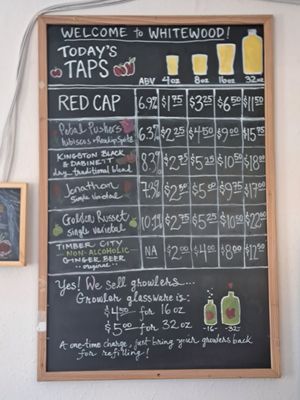 WELCOME TO WHITEWOOD!
TODAY'S
TAPS
ABV 4oz 8oz 16oz 32oz
RED CAP 6.9% $1.75 $3.25 $6.50 $11.50
Petal Pushers 6.3% $2.25 $4.50 $9.00 $15.75
hibiscus + Rosehip Spritz
KINGSTON BLACK
& DABINETT 8.3% $2.75 $5.25 $10.50 $18.00
dry traditional blend
Jonathan
single varietal
Golden Russet $2.75 $5.25 $10.50
single varietal
TIMBER CITY
NON-ALCOHOLIC NA $2.00 $4.00 $8.00
GINGER BEER
original
Yes! We sell growlers...
Growler glassware is:
$4.50 for 16 oz
$5.00 for 32 oz
-16- -32-
A one-time charge, just bring your growlers back
for refilling!